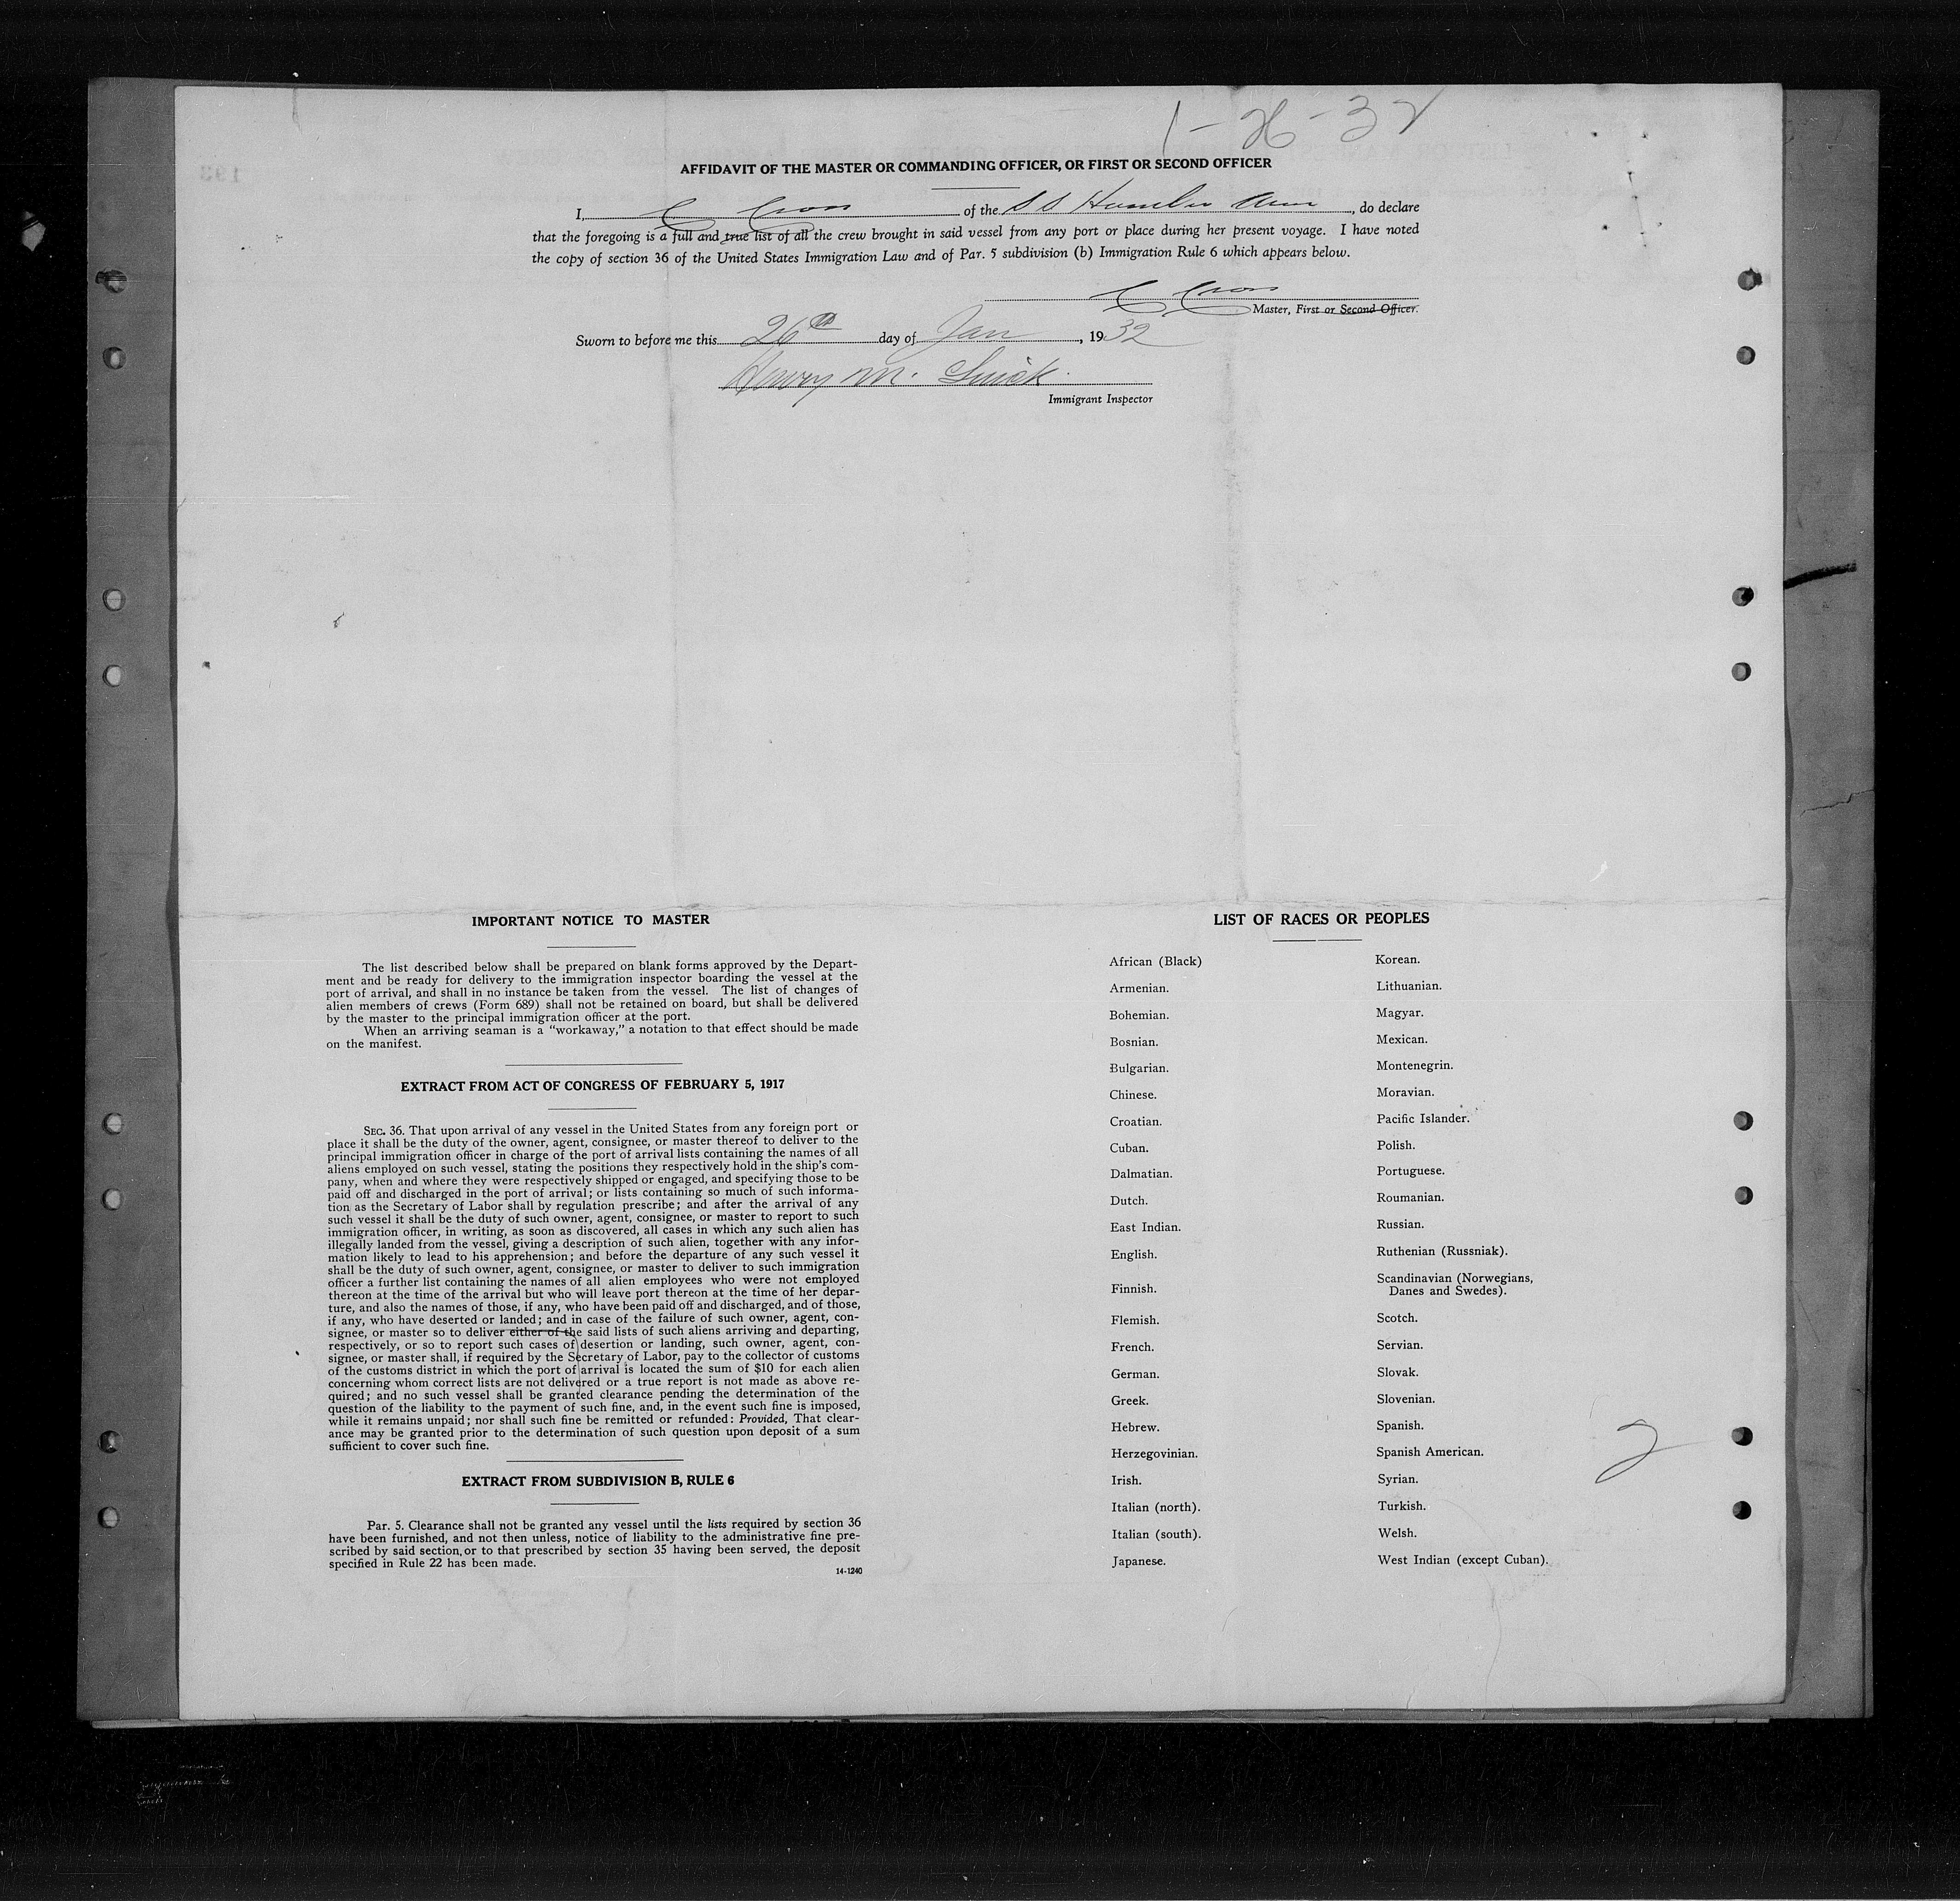 1-26-32
AFFIDAVIT OF THE MASTER OR COMMANDING OFFICER, OR FIRST OR SECOND OFFICER
I, C Cross of the S S Humber Arm, do declare
that the foregoing is a full and true list of all the crew brought in said vessel from any port or place during her present voyage. I have noted
the copy of section 36 of the United States Immigration Law and of Par. 5 subdivision (b) Immigration Rule 6 which appears below.
C Cross
Master, First or Second Officer.
Sworn to before me this 26th day of Jan, 1932
Henry M.
Immigrant Inspector
IMPORTANT NOTICE TO MASTER
The list described below shall be prepared on blank forms approved by the Depart-
ment and be ready for delivery to the immigration inspector boarding the vessel at the
port of arrival, and shall in no instance be taken from the vessel. The list of changes of
alien members of crews (Form 689) shall not be retained on board, but shall be delivered
by the master to the principal immigration officer at the port.
When an arriving seaman is a “workaway,” a notation to that effect should be made
on the manifest.
EXTRACT FROM ACT OF CONGRESS OF FEBRUARY 5, 1917
SEC. 36. That upon arrival of any vessel in the United States from any foreign port or
place it shall be the duty of the owner, agent, consignee, or master thereof to deliver to the
principal immigration officer in charge of the port of arrival lists containing the names of all
aliens employed on such vessel, stating the positions they respectively hold in the ship's com-
pany, when and where they were respectively shipped or engaged, and specifying those to be
paid off and discharged in the port of arrival; or lists containing so much of such informa-
tion as the Secretary of Labor shall by regulation prescribe; and after the arrival of any
such vessel it shall be the duty of such owner, agent, consignee, or master to report to such
immigration officer, in writing, as soon as discovered, all cases in which any such alien has
illegally landed from the vessel, giving a description of such alien, together with any infor-
mation likely to lead to his apprehension; and before the departure of any such vessel it
shall be the duty of such owner, agent, consignee, or master to deliver to such immigration
officer a further list containing the names of all alien employees who were not employed
thereon at the time of the arrival but who will leave port thereon at the time of her depar-
ture, and also the names of those, if any, who have been paid off and discharged, and of those,
if any, who have deserted or landed; and in case of the failure of such owner, agent, con-
signee, or master so to deliver either of the said lists of such aliens arriving and departing,
respectively, or so to report such cases of desertion or landing, such owner, agent, con-
signee, or master shall, if required by the Secretary of Labor, pay to the collector of customs
of the customs district in which the port of arrival is located the sum of $10 for each alien
concerning whom correct lists are not delivered or a true report is not made as above re-
quired; and no such vessel shall be granted clearance pending the determination of the
question of the liability to the payment of such fine, and, in the event such fine is imposed,
while it remains unpaid; nor shall such fine be remitted or refunded: Provided, That clear-
ance may be granted prior to the determination of such question upon deposit of a sum
sufficient to cover such fine.
EXTRACT FROM SUBDIVISION B, RULE 6
Par. 5. Clearance shall not be granted any vessel until the lists required by section 36
have been furnished, and not then unless, notice of liability to the administrative fine pre-
scribed by said section, or to that prescribed by section 35 having been served, the deposit
specified in Rule 22 has been made.
14-1240
LIST OF RACES OR PEOPLES
African (Black)
Armenian.
Bohemian.
Bosnian.
Bulgarian.
Chinese.
Croatian.
Cuban.
Dalmatian.
Dutch.
East Indian.
English.
Finnish.
Flemish.
French.
German.
Greek.
Hebrew.
Herzegovinian.
Irish.
Italian (north).
Italian (south).
Japanese.
Korean.
Lithuanian.
Magyar.
Mexican.
Montenegrin.
Moravian.
Pacific Islander.
Polish.
Portuguese.
Roumanian.
Russian.
Ruthenian (Russniak).
Scandinavian (Norwegians,
Danes and Swedes).
Scotch.
Servian.
Slovak.
Slovenian.
Spanish.
Spanish American.
Syrian.
Turkish.
Welsh.
West Indian (except Cuban).
2